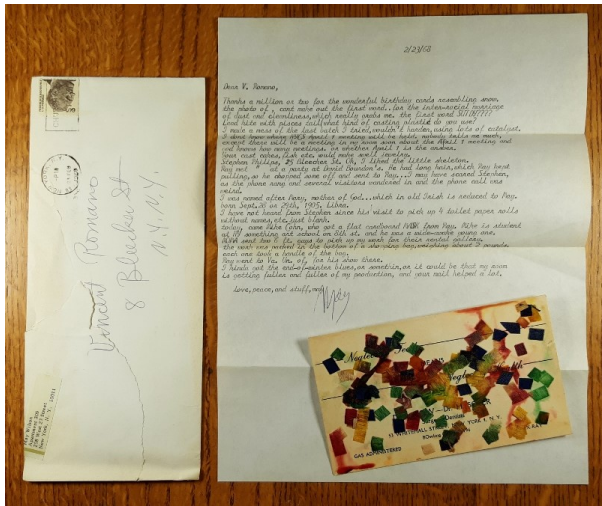 2/23/68
Dear V. Romano,
Thanks a million or two for the wonderful birthday cards resembling snow,
the photo of, cant make out the first word..for the inter-social marriage
of dust and cleanliness, which really grabs me. the first word
Load bite with pieces fall, what kind of casting plastic do you use?
I made a mess of the last batch I tried, wouldn't harden, using lots of catalyst.
I dont know where April 1 meeting will be held, nobody tells me much,
except there will be a meeting in my room soon about the April 1 meeting and
god knows how many meetings, or whether April 1 is the answer.
Your cast cakes, fish etc. would make well jewelry.
Stephen Philips, 25 Bleecker St. I liked the little skeleton.
Ray met at a party at David He had long hair, which Ray kept
pulling, so he chopped some off and sent to Ray... I may have scared Stephen,
as the phone rang and several visitors wandered in and the phone call was
weird.
I was named after mother of God...which in old Irish is reduced to May.
born Sept. 28 or 29th, 1905, Libra.
I have not heard from Stephen since his visit to pick up 4 toilet paper rolls
without names, etc. just blank.
today, came Mike Cohn, who got a flat from Ray. Mike is student
at something art school on 6th st, and he was a nice young one.
sent two guys to pick up my work for their rental gallery.
the work was packed in the bottom of a shopping bag, weighing about 2 pounds
each one took a handle of the bag.
Ray went to Va. Un. of, for his show there.
I kinda got the end-of-winter blues, or somethin, or it could be that my room
is getting fuller and fuller of my production, and your mail helped a lot.
love, peace, and stuff, and
May
Vincent Romano
8 Bleecker St
N.Y. N.Y.
May Wilson
New York, N.Y. 10011
Neglected Teeth
MEANS
Neglected Health
Surgeon Dentist
13 WHITEHALL STREET NEW YORK 4, N. Y.
GAS ADMINISTERED
X-RAY